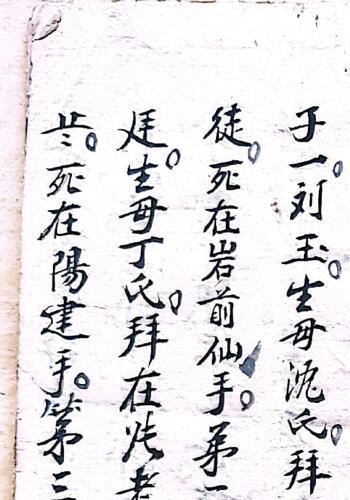 子一。刘玉。生母沈氏。拜
徒。死在岩前仙手。弟一
廷。生母丁氏。拜在老
。死在陽建手。第三